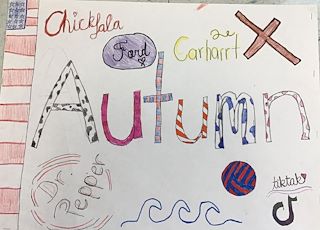 Chickfala
Ford
Carhartt
Autumn
Dr.
Pepper
tiktok